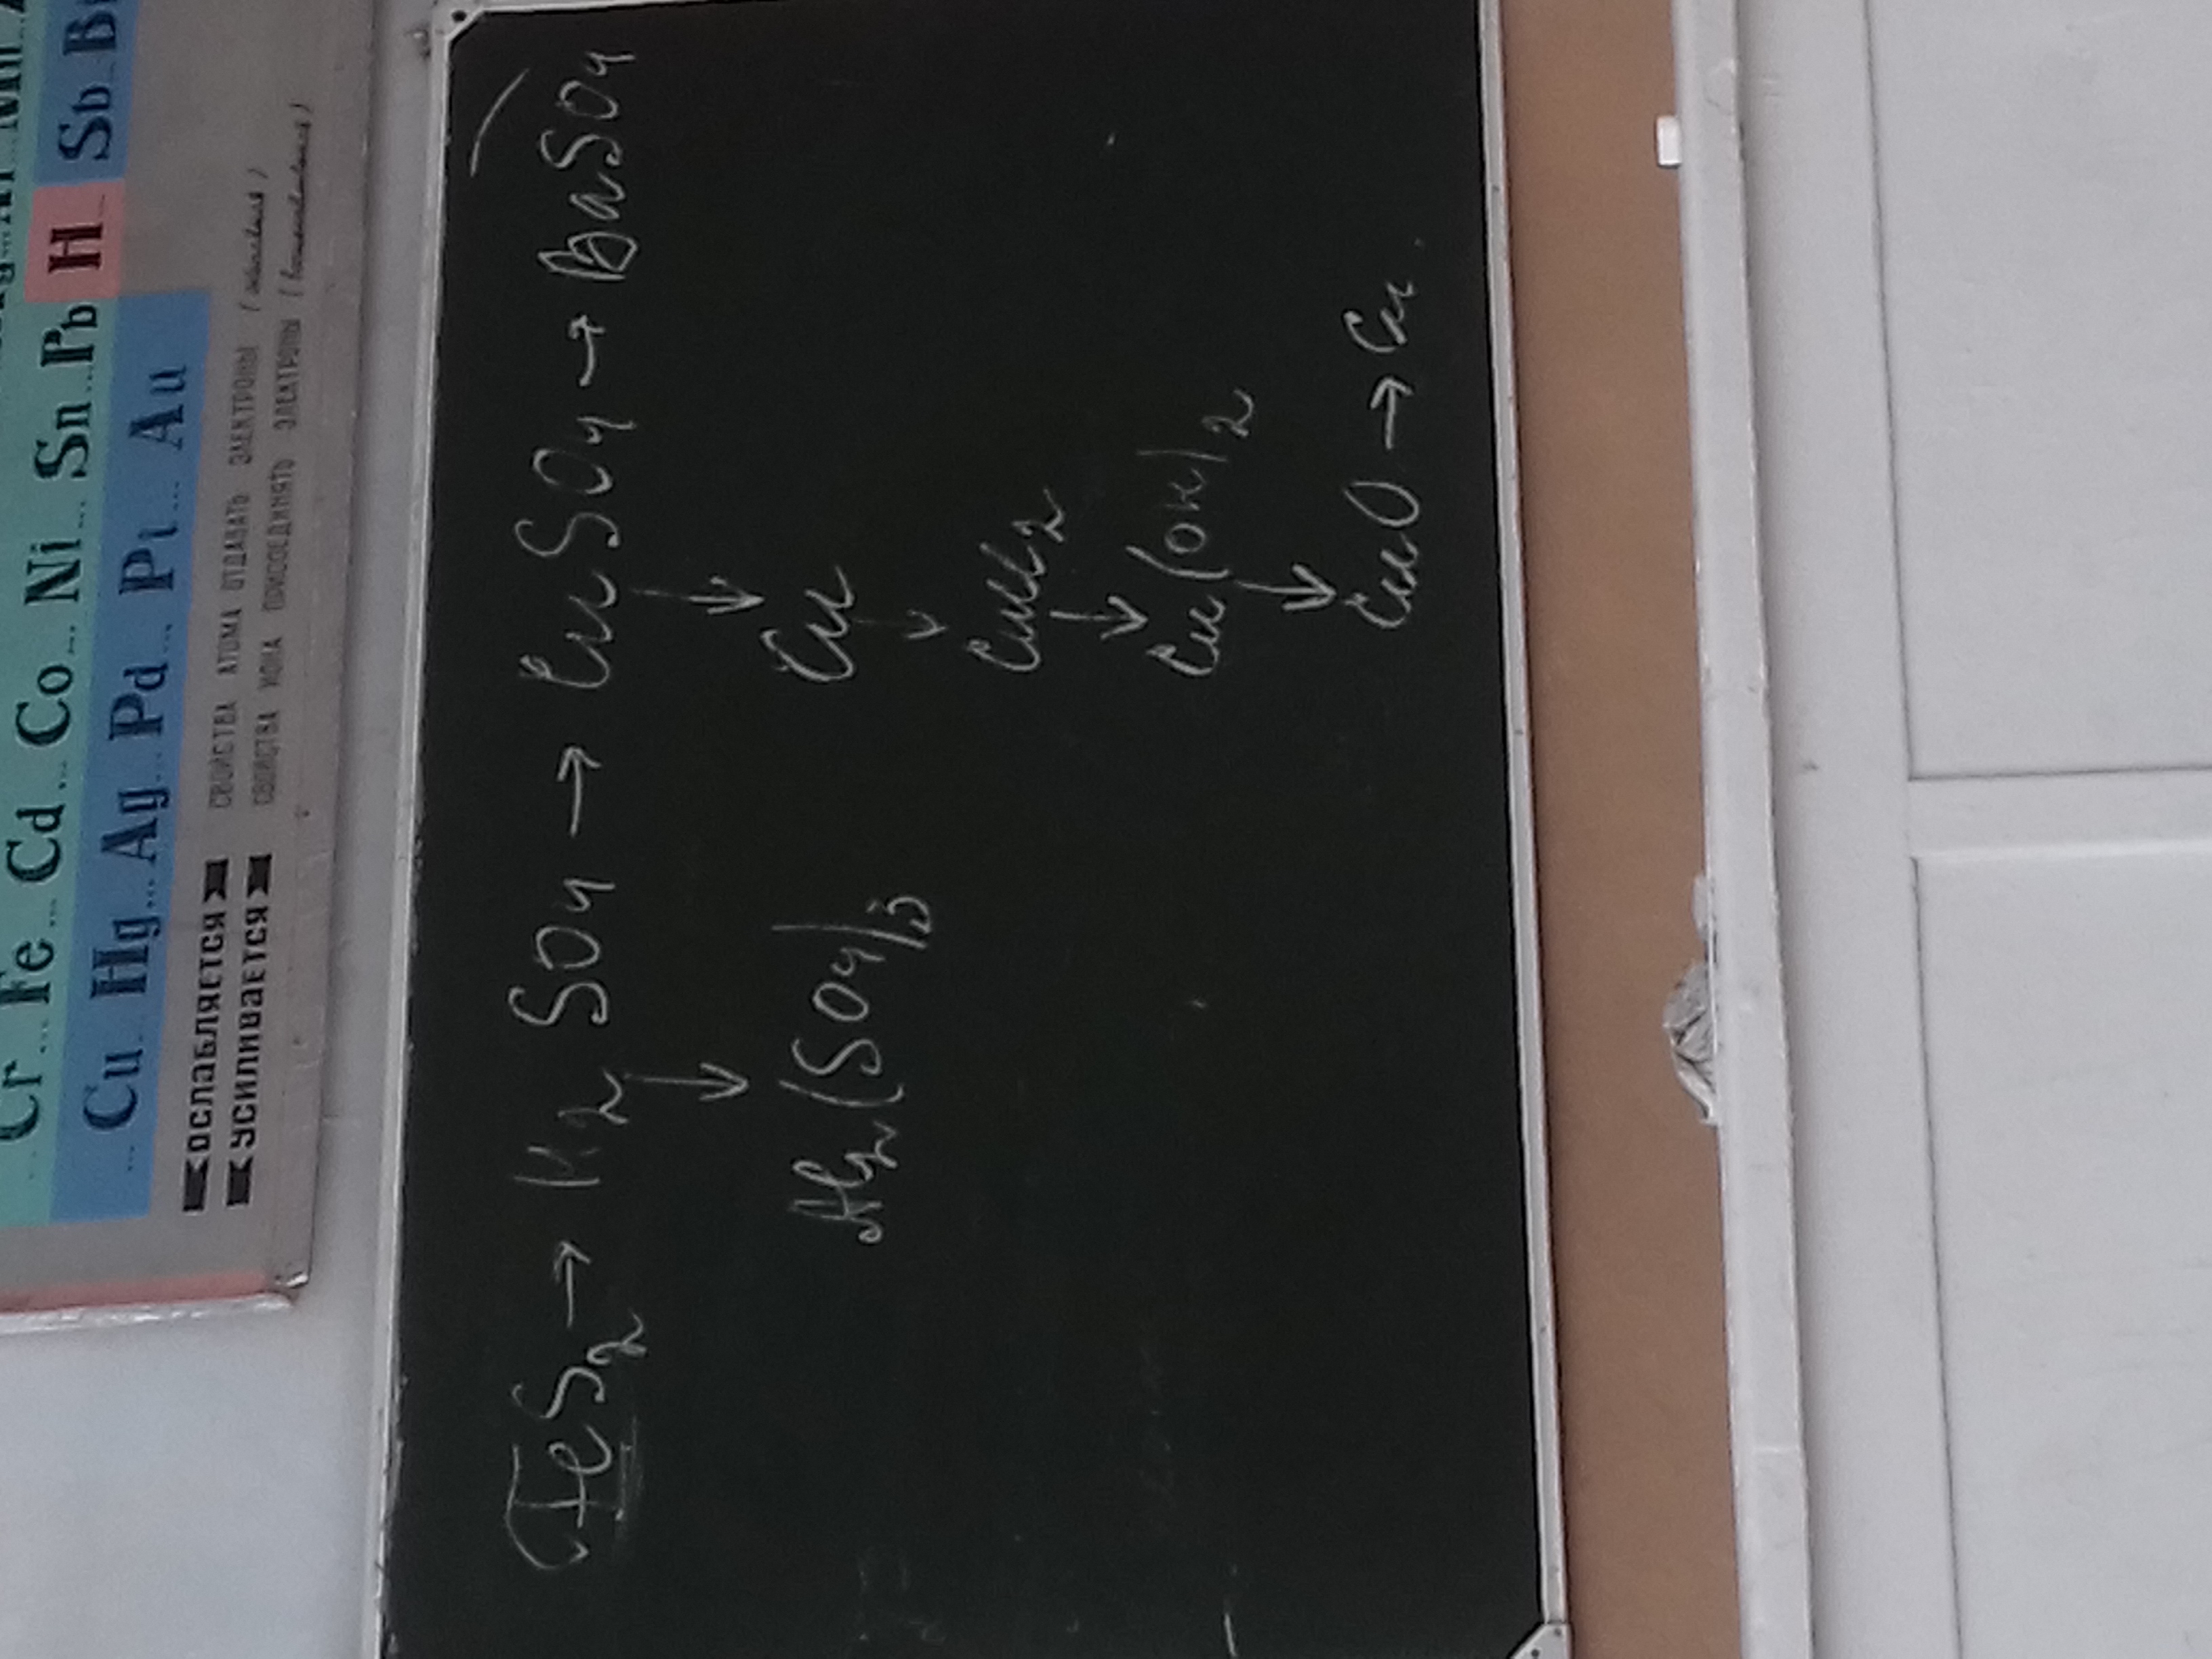 Cr ... Fe ... Cd ... Co ... Ni ... Sn ... Pb H ... Sb ...
... Cu ... Hg ... Ag ... Pd ... Pt ... Au
ОСЛАБЛЯЕТСЯ СВОЙСТВА АТОМА ОТДАВАТЬ ЭЛЕКТРОНЫ
УСИЛИВАЕТСЯ СВОЙСТВА ИОНА ПРИСОЕДИНЯТЬ ЭЛЕКТРОНЫ
FeS2 → H2SO4 → CuSO4 → BaSO4
↓ ↓
Al2(SO4)3 Cu
↓
CuCl2
↓
Cu(OH)2
↓
CuO → Cu.